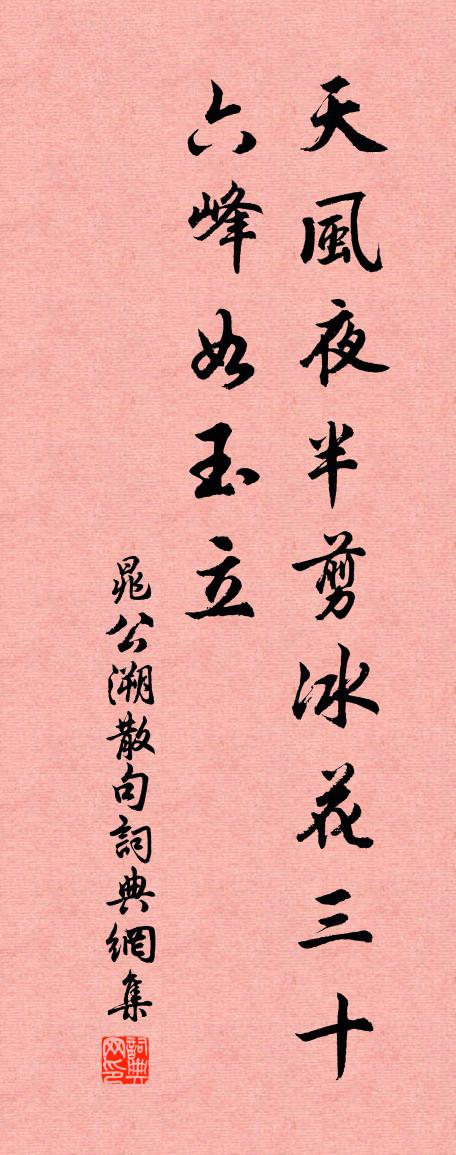 天風夜半剪冰花三十
六峰如玉立
晁公溯散句詞典網集
詞典网印